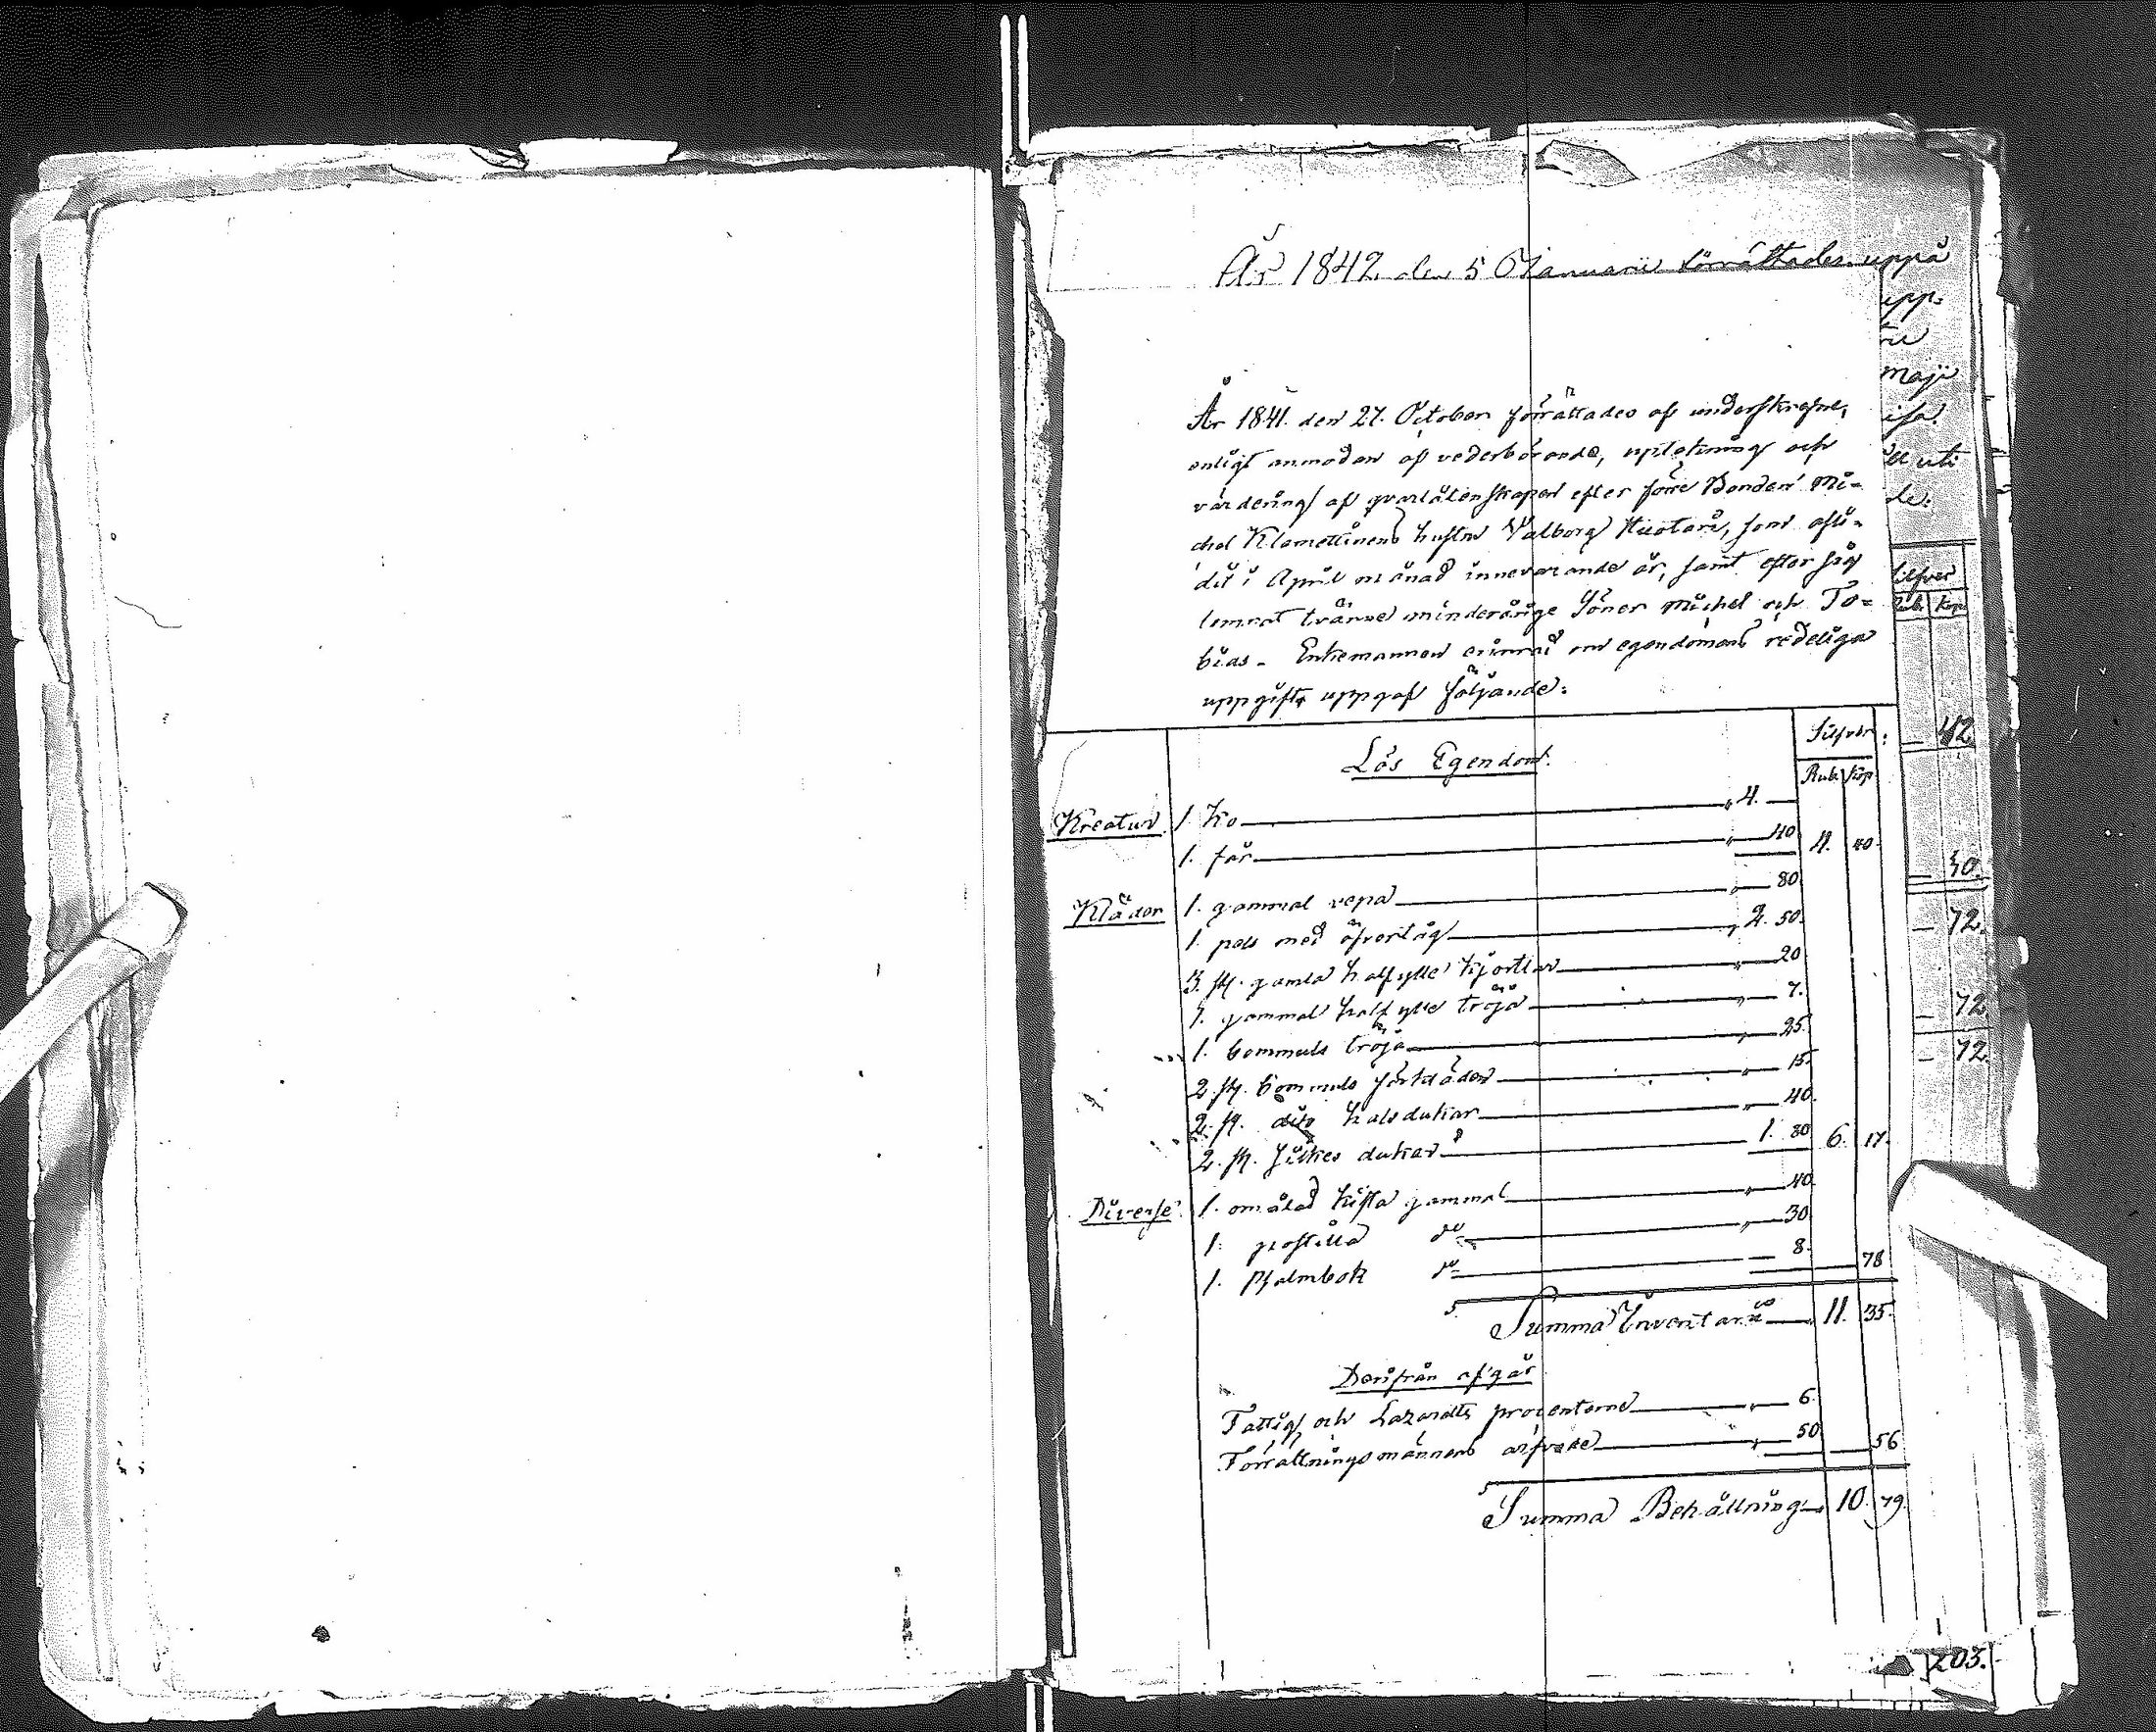 År 1842 den 5 Januarii förrättades uppå
upp-
rie
Maji
isa
ll uti
de:
År 1841. den 27. October förrättades af underskrefne,
enligt anmodan af vederbörande, upteckning och
värdering af qvarlåtenskapen efter förre Bonden Mi-
chel Klemettinens hustru Valborg Huotari, som afli-
dit i April månad innevarande år, samt efter sig
lemnat tvänne minderårige Söner Michel och To-
bias - Enkemannen erinrad om egendomens redeliga
uppgift, uppgaf följande:
Silfver
Rub. Kop.
Lös Egendom.
Silfver:
Rub. Kop
Kreatur 1. Ko " 4. —
1. får " — 40 4. 40.
Kläder 1. gammal vepa " — 80
1. pels med öfvertåg " 2. 50.
3. st. gamla halfylle kjortlar " — 20
1. gammal halfylle tröja " — 7.
1. bommuls tröja " — 25.
2. st. bommuls förkläden " — 15.
2. st. dito halsdukar " — 40.
2. st. silkes dukar 1. 80 6. 17.
Diverse 1. omålad kista gammal " — 40.
1. postilla do " — 30
1. Psalmbok do — 8. — 78
Summa Inventarii 11. 35.
Derifrån afgår
Fattig och Lazaretts procenterne " — 6.
Förrättningsmännens arfvode " — 50 — 56
Summa Behållning 10. 79.
— 42.
— 40.
— 72.
— 72
— 72.
203.